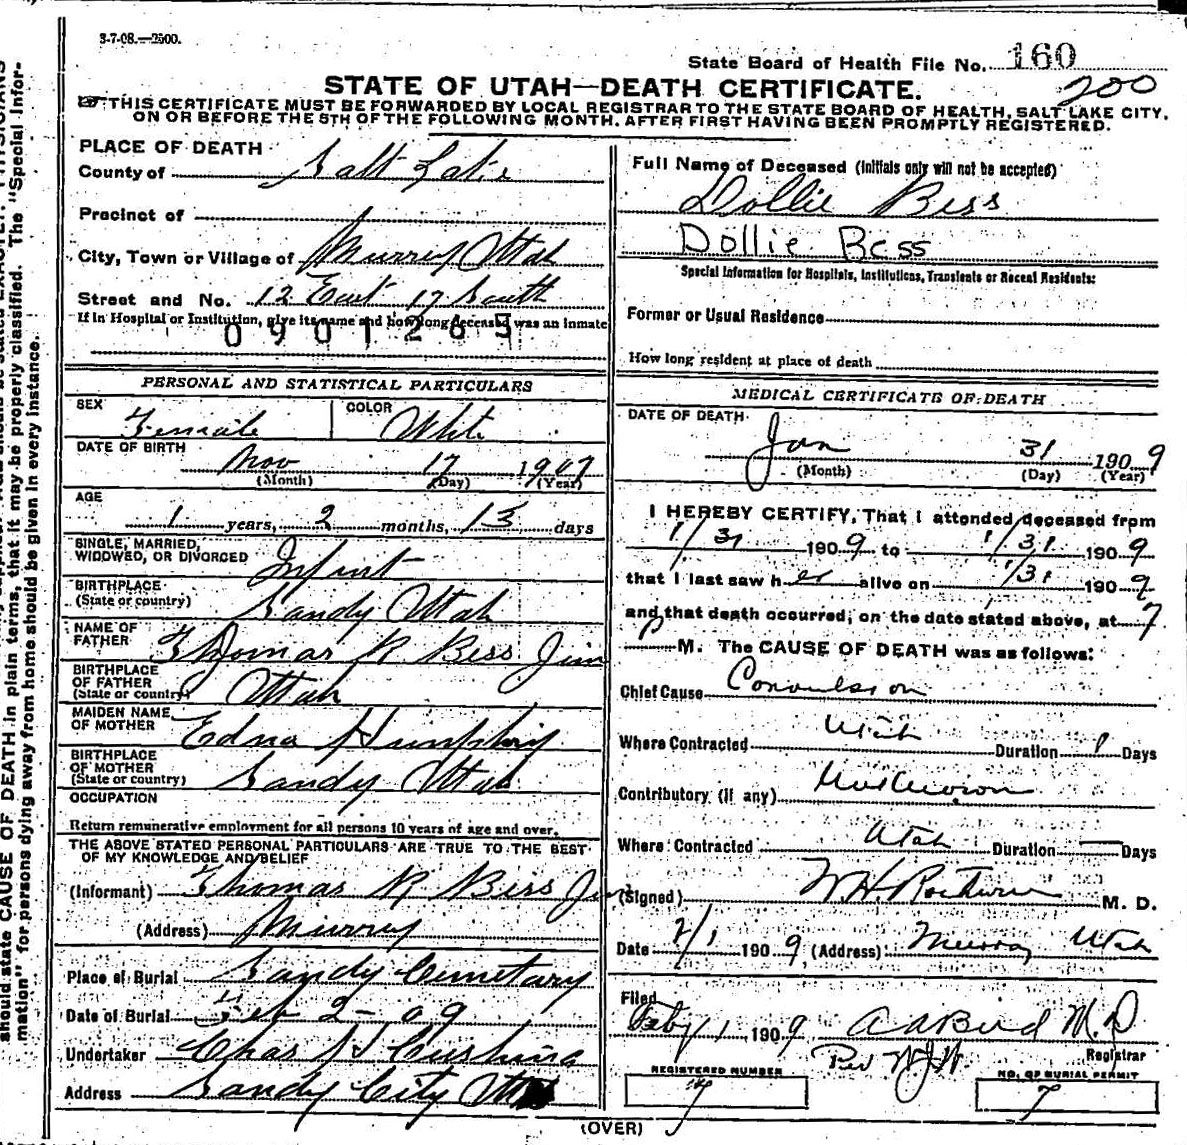 3-7-08.—2500.
State Board of Health File No. 160
200
STATE OF UTAH—DEATH CERTIFICATE.
THIS CERTIFICATE MUST BE FORWARDED BY LOCAL REGISTRAR TO THE STATE BOARD OF HEALTH, SALT LAKE CITY,
ON OR BEFORE THE 5TH OF THE FOLLOWING MONTH. AFTER FIRST HAVING BEEN PROMPTLY REGISTERED.
PLACE OF DEATH
County of Salt Lake
Precinct of
City, Town or Village of Murray Utah
Street and No. 12 East 17 South
If in Hospital or Institution, give its name and how long deceased was an inmate
0901265
PERSONAL AND STATISTICAL PARTICULARS
SEX Female
COLOR White
DATE OF BIRTH
Nov 17 1907
(Month) (Day) (Year)
AGE
1 years, 2 months, 13 days
SINGLE, MARRIED,
WIDOWED, OR DIVORCED Infint
BIRTHPLACE
(State or country) Sandy Utah
NAME OF
FATHER Thomas R Bess Jun
BIRTHPLACE
OF FATHER
(State or country) Utah
MAIDEN NAME
OF MOTHER Edna Humphry
BIRTHPLACE
OF MOTHER
(State or country) Sandy Utah
OCCUPATION
Return remunerative employment for all persons 10 years of age and over.
THE ABOVE STATED PERSONAL PARTICULARS ARE TRUE TO THE BEST
OF MY KNOWLEDGE AND BELIEF
(Informant) Thomas R Bess Jun
(Address) Murray
Place of Burial Sandy Cemetary
Date of Burial Feb 2-09
Undertaker Chas H Cushing
Address Sandy City Utah
Full Name of Deceased (Initials only will not be accepted)
Dollie Bess
Dollie Bess
Special Information for Hospitals, Institutions, Transients or Recent Residents:
Former or Usual Residence
How long resident at place of death
MEDICAL CERTIFICATE OF DEATH
DATE OF DEATH
Jan 31 1909
(Month) (Day) (Year)
I HEREBY CERTIFY, That I attended deceased from
1/31 1909 to 1/31 1909
that I last saw her alive on 1/31 1909
and that death occurred, on the date stated above, at 7
P M. The CAUSE OF DEATH was as follows:
Chief Cause Convulsion
Where Contracted Utah Duration 1 Days
Contributory (if any)
Where Contracted Utah Duration — Days
(Signed) W.H. M. D.
Date 2/1 1909 (Address) Murray Utah
Filed
Feby 1 1909 M.D
Registrar
Per W.J.W.
REGISTERED NUMBER
7
NO. OF BURIAL PERMIT
7
(OVER)
should state CAUSE OF DEATH in plain terms, that it may be properly classified. The "Special Infor-
mation" for persons dying away from home should be given in every instance.